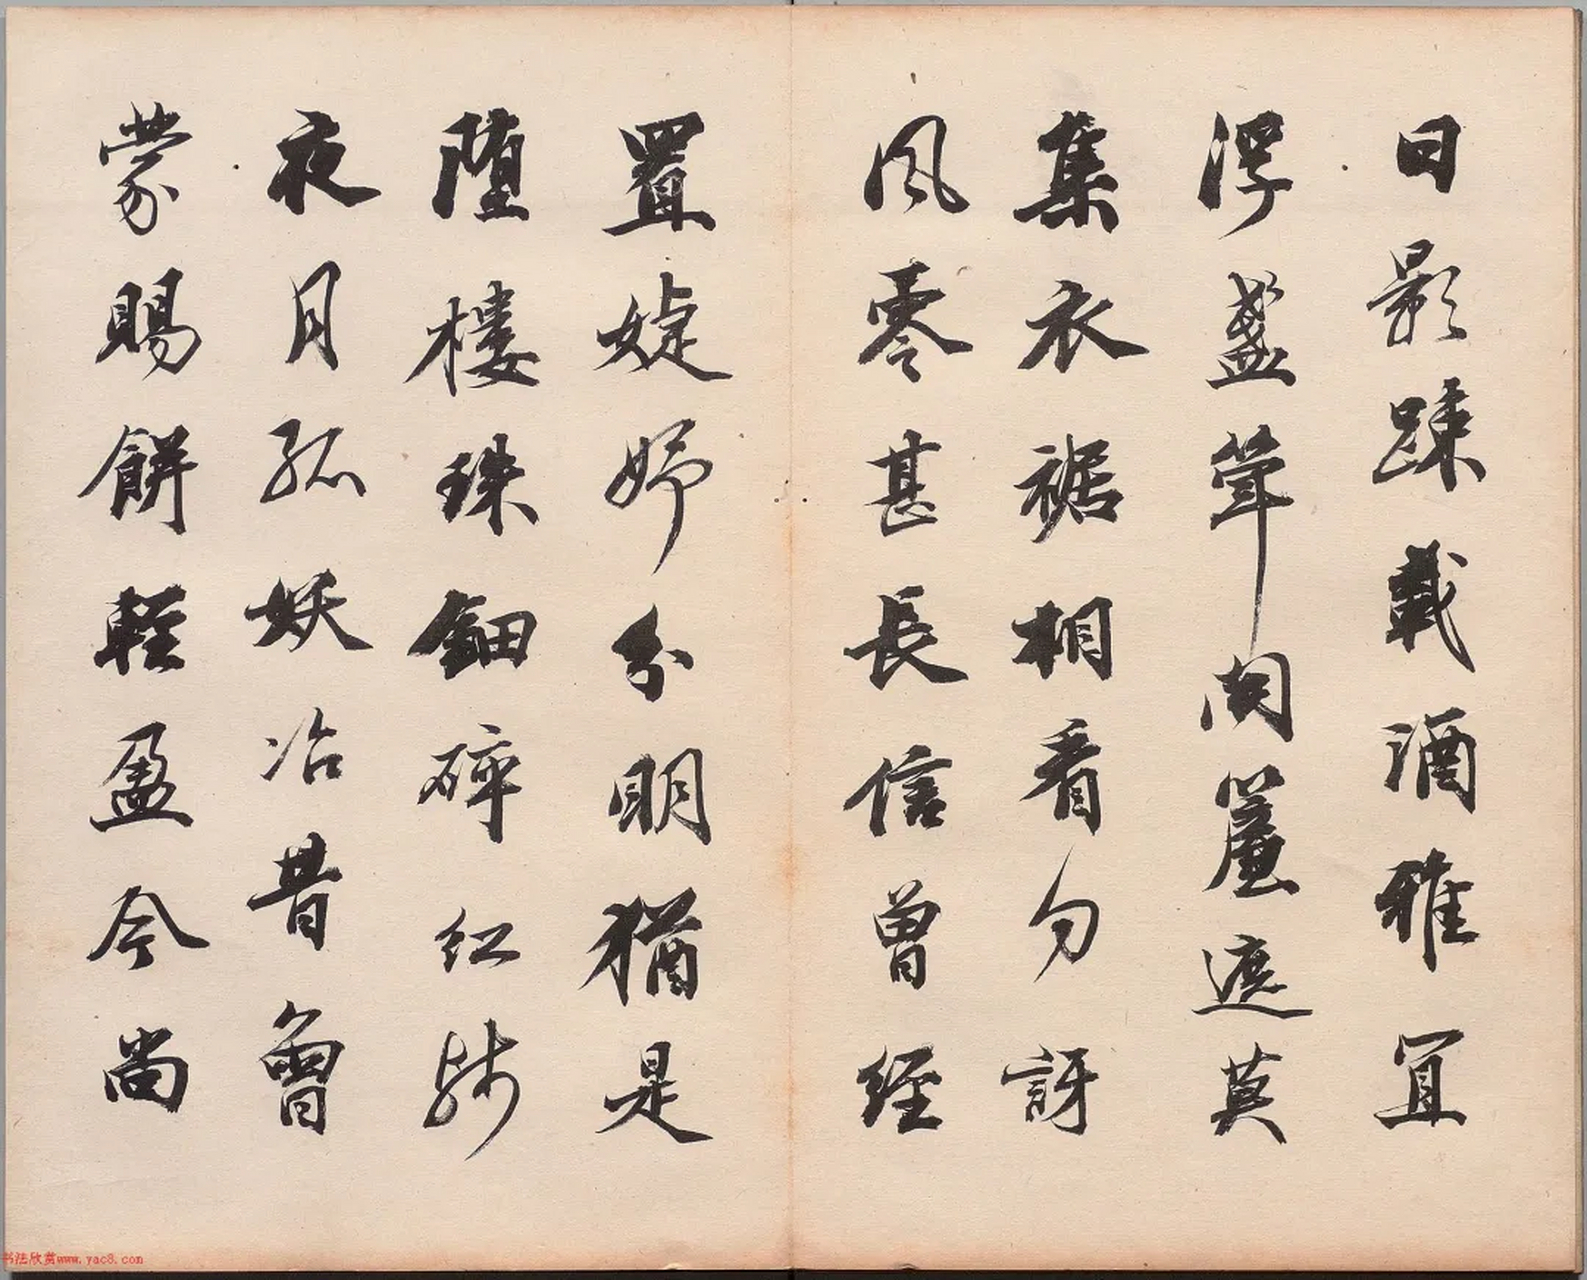 日影踈載酒雅宜
浮盞聳閑簾遮莫
集衣裾相看勿訝
風零甚長信曾經
置婕妤分明猶是
墮樓珠鈿碎紅殘
夜月孤妖冶昔曾
蒙賜餅輕盈今尚
书法欣赏www.yac8.com